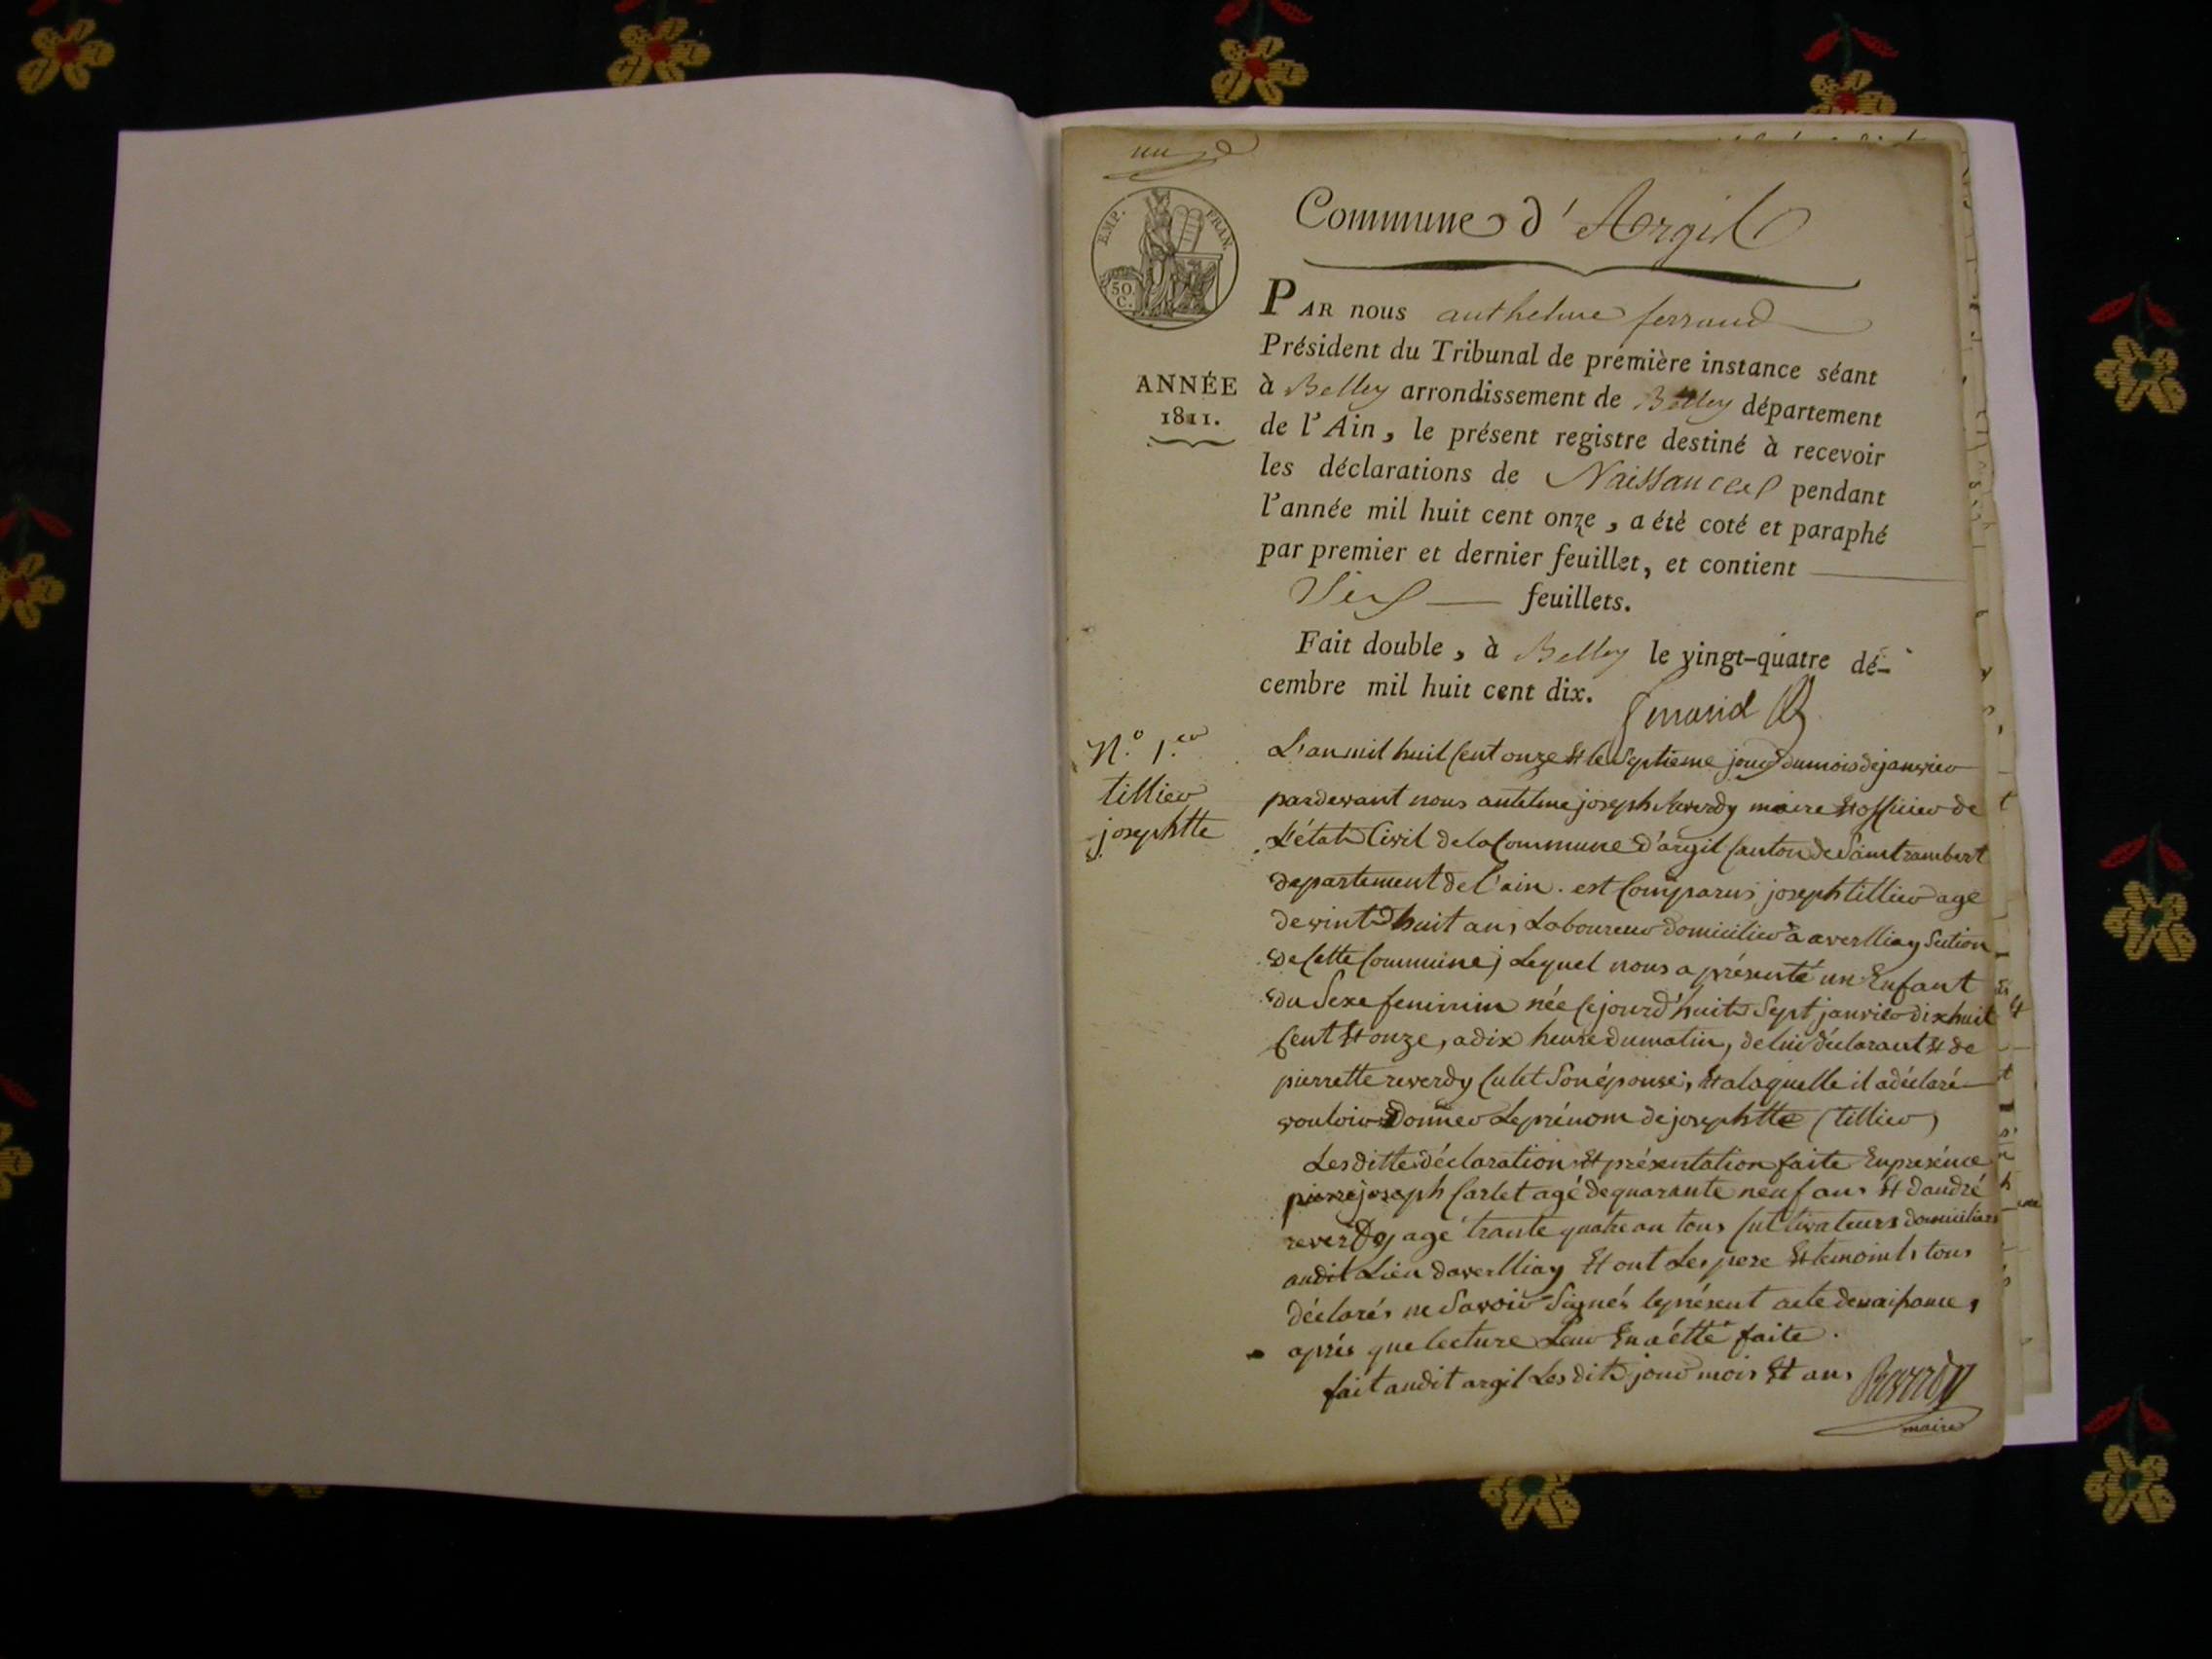 un
EMP. FRAN.
50.
C.
Commune d'Argil
PAR nous anthelme ferrand
Président du Tribunal de première instance séant
ANNÉE
1811.
à Belley arrondissement de Belley département
de l'Ain, le présent registre destiné à recevoir
les déclarations de Naissances pendant
l'année mil huit cent onze, a été coté et paraphé
par premier et dernier feuillet, et contient
Six feuillets.
Fait double, à Belley le vingt-quatre dé-
cembre mil huit cent dix.
N.o 1.er
tillier
josephtte
L'an mil huit Cent onze Et le Septieme jour du mois de janvier
pardevant nous antelme joseph Reverdy maire Et officier de
L'état Civil de la Commune d'argil Canton de Saint rambert
departement de l'ain. est Comparus joseph tillier age
de vint huit ans Laboureur domicilier a averlliay Section
de Cette Commune; Lequel nous a présenté un Enfant
du Sexe feminin née Cejourd'huit Sept janvier dix huit
Cent Et onze, a dix heure du matin, de lui déclarant Et de
pierrette reverdy Culet Son épouse, Et a laquelle il a déclaré
vouloir Donner Le prénom de josephtte (tillier)
Les ditte déclaration Et présentation faite En presénce
pierre joseph Carlet agé de quarante neuf ans Et d'andré
reverdy agé trante quatre an tous Cultivateurs domiciliers
audit Lieu d'averlliay Et ont Les pere Et temoints tous
déclarés ne Savoir Signés le présent acte de naissance,
aprés que lecture Leur En a étté faite.
fait audit argil Les dits jour mois Et ans Reverdy
maire